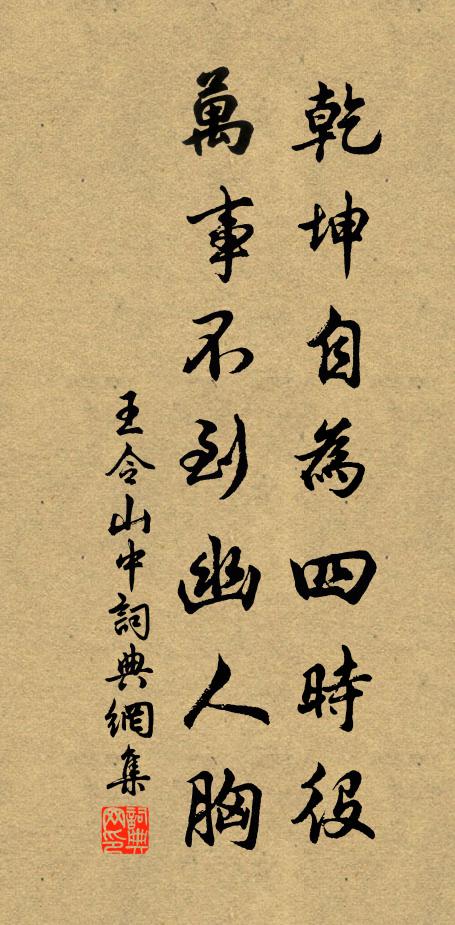 乾坤自為四時役
萬事不到幽人胸
王令山中詞典網集
詞典網印